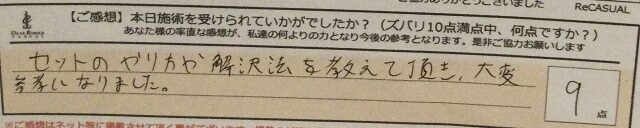 ReCASUAL
【ご感想】本日施術を受けられていかがでしたか？（ズバリ10点満点中、何点ですか？）
あなた様の率直な感想が、私達の何よりの力となり今後の参考となります。是非ご協力お願いします
セットのやりかや解決法を教えて頂き、大変
参考になりました。
9
点